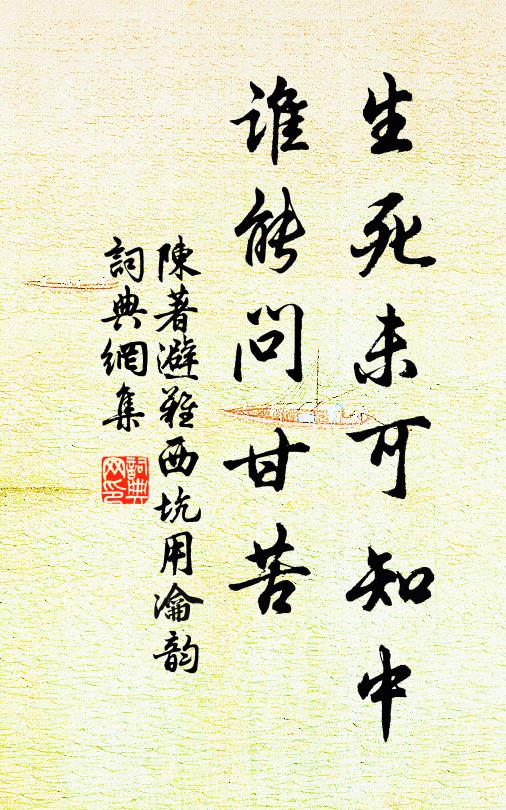 生死未可知中
谁能问甘苦
陳著避難西坑用瀹韵
詞典網集
詞典网印